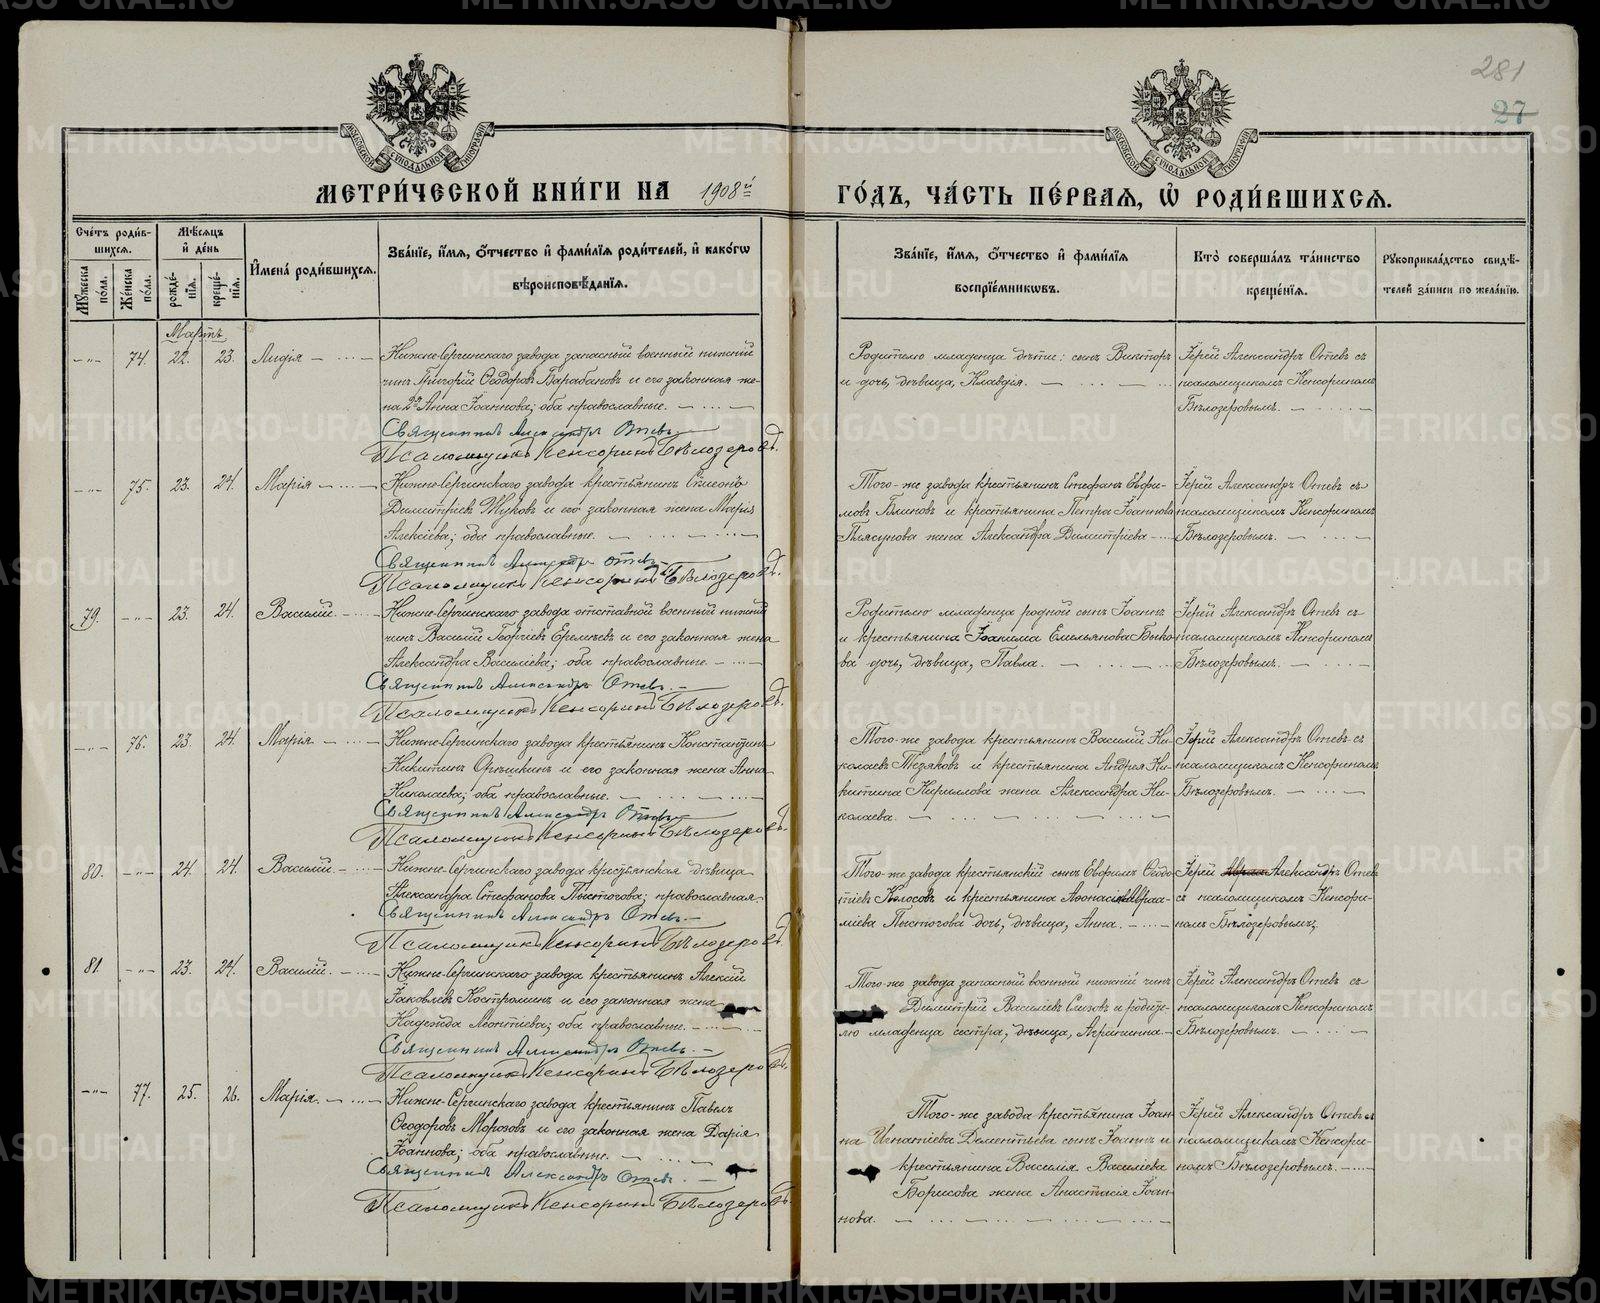 281
27
МОСКОВСКОЙ СѴНОДАЛЬНОЙ ТИПОГРАФІИ
МОСКОВСКОЙ СѴНОДАЛЬНОЙ ТИПОГРАФІИ
МЕТРИ́ЧЕСКОЙ КНИ́ГИ НА 1908й ГО́ДЪ, ЧА́СТЬ ПЕ́РВАѦ, Ѡ҆ РОДИ́ВШИХСѦ.
Сче́тъ роди́в-
шихсѧ.
Мꙋ́жеска по́ла.
Же́нска по́ла.
Мѣ́сѧцъ
и҆ де́нь
рожде́-
нїѧ.
креще́-
нїѧ.
И҆мена̀ роди́вшихсѧ.
Зва́нїе, и҆́мѧ, ѻ҆́тчество и҆ фами́лїѧ роди́телей, и҆ како́гѡ
вѣроисповѣ́данїѧ.
Зва́нїе, и҆́мѧ, ѻ҆́тчество и҆ фами́лїѧ
воспрїе́мникѡвъ.
Кто̀ соверша́лъ та́инство
креще́нїѧ.
Рꙋкоприкла́дство свидѣ́-
телей за́писи по жела́нїю.
Мартъ
-"- 74 22. 23. Лидія
Нижне-Сергинскаго завода запасный военный нижній
чинъ Григорій Ѳеодоровъ Барабановъ и его законная же-
на 2я Анна Іоаннова; оба православные.
Священникъ Александръ Отевъ.
Псаломщикъ Кенсоринъ Бѣлозеровъ.
Родителю младенца дѣти: сынъ Викторъ
и дочь, дѣвица, Клавдія.
Іерей Александръ Отевъ съ
псаломщикомъ Кенсориномъ
Бѣлозеровымъ.
-"- 75. 23. 24. Марія
Нижне-Сергинскаго завода крестьянинъ Симеонъ
Димитріевъ Жуковъ и его законная жена Марія
Алексіева; оба православные.
Священникъ Александръ Отевъ.
Псаломщикъ Кенсоринъ Бѣлозеровъ.
Того-же завода крестьянинъ Стефанъ Евѳи-
мовъ Блиновъ и крестьянина Петра Іоаннова
Плясунова жена Александра Димитріева
Іерей Александръ Отевъ съ
псаломщикомъ Кенсориномъ
Бѣлозеровымъ.
79. -"- 23. 24. Василій.
Нижне-Сергинскаго завода отставной военный нижній
чинъ Василій Георгіевъ Еремѣевъ и его законная жена
Александра Василіева; оба православные.
Священникъ Александръ Отевъ.
Псаломщикъ Кенсоринъ Бѣлозеровъ.
Родителю младенца родной сынъ Іоаннъ
и крестьянина Іоакима Емельянова Быко-
ва дочь, дѣвица, Павла.
Іерей Александръ Отевъ съ
псаломщикомъ Кенсориномъ
Бѣлозеровымъ.
-"- 76. 23. 24. Марія
Нижне-Сергинскаго завода крестьянинъ Константинъ
Никитинъ Орѣшкинъ и его законная жена Анна
Николаева; оба православные.
Священникъ Александръ Отевъ
Псаломщикъ Кенсоринъ Бѣлозеровъ.
Того-же завода крестьянинъ Василій Ни-
колаевъ Тезяковъ и крестьянина Андрея Ни-
китина Кирилова жена Александра Ни-
колаева.
Іерей Александръ Отевъ съ
псаломщикомъ Кенсориномъ
Бѣлозеровымъ.
80. -"- 24. 24. Василій.
Нижне-Сергинскаго завода крестьянская дѣвица
Александра Стефанова Пыстогова; православная.
Священникъ Александръ Отевъ.
Псаломщикъ Кенсоринъ Бѣлозеровъ.
Того-же завода крестьянскій сынъ Евѳимъ Ѳеодо-
тіевъ Колосовъ и крестьянина Аѳонасія Авраа-
міева Пыстогова дочь, дѣвица, Анна.
Іерей Александръ Отевъ
съ псаломщикомъ Кенсори-
номъ Бѣлозеровымъ.
81. -"- 23. 24. Василій.
Нижне-Сергинскаго завода крестьянинъ Алексій
Іаковлевъ Костроминъ и его законная жена
Надежда Леонтіева; оба православные.
Священникъ Александръ Отевъ.
Псаломщикъ Кенсоринъ Бѣлозеровъ.
Того-же завода запасный военный нижній чинъ
Димитрій Василіевъ Сизовъ и родите-
лю младенца сестра, дѣвица, Агриппина.
Іерей Александръ Отевъ съ
псаломщикомъ Кенсориномъ
Бѣлозеровымъ.
-"- 77. 25. 26. Марія.
Нижне-Сергинскаго завода крестьянинъ Павелъ
Ѳеодоровъ Морозовъ и его законная жена Дарія
Іоаннова; оба православные.
Священникъ Александръ Отевъ.
Псаломщикъ Кенсоринъ Бѣлозеровъ.
Того-же завода крестьянина Іоан-
на Игнатіева Дементьева сынъ Іоаннъ и
крестьянина Василія Василіева
Борисова жена Анастасія Іоан-
нова.
Іерей Александръ Отевъ съ
псаломщикомъ Кенсори-
номъ Бѣлозеровымъ.
METRIKI.GASO-URAL.RU